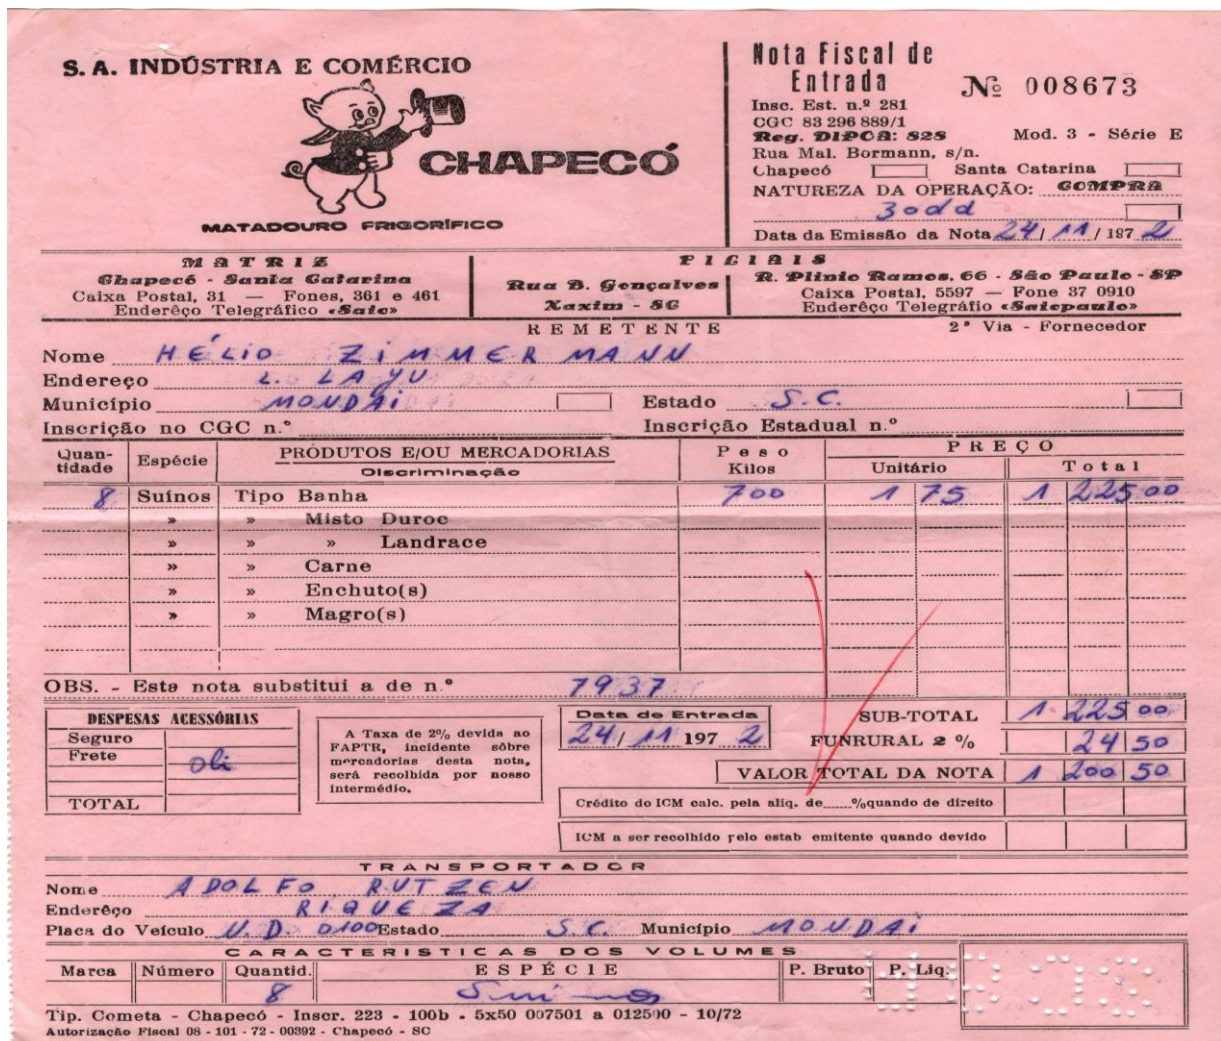 S. A. INDÚSTRIA E COMÉRCIO
CHAPECÓ
MATADOURO FRIGORÍFICO
Nota Fiscal de
Entrada Nº 008673
Insc. Est. n.º 281
CGC 83 296 889/1
Reg. DIPOA: 828 Mod. 3 - Série E
Rua Mal. Bormann, s/n.
Chapecó Santa Catarina
NATUREZA DA OPERAÇÃO: COMPRA
Data da Emissão da Nota 24/11/1972
MATRIZ
Chapecó - Santa Catarina
Caixa Postal, 31 — Fones, 361 e 461
Enderêço Telegráfico «Saic»
FILIAIS
Rua B. Gonçalves
Xaxim - SC
R. Plinio Ramos, 66 - São Paulo - SP
Caixa Postal, 5597 — Fone 37 0910
Enderêço Telegráfio «Saicpaulo»
REMETENTE 2ª Via - Fornecedor
Nome HÉLIO ZIMMERMANN
Endereço L. LAJU
Município MONDAÍ Estado S.C.
Inscrição no CGC n.º Inscrição Estadual n.º
Quantidade Espécie PRODUTOS E/OU MERCADORIAS Peso PREÇO
Discriminação Kilos Unitário Total
8 Suínos Tipo Banha 700 1 75 1 225 00
» » Misto Duroc
» » » Landrace
» » Carne
» » Enchuto(s)
» » Magro(s)
OBS. - Esta nota substitui a de n.º 7937
DESPESAS ACESSÓRIAS
Seguro
Frete
TOTAL
A Taxa de 2% devida ao
FAPTR, incidente sôbre
mercadorias desta nota,
será recolhida por nosso
intermédio.
Data de Entrada
24/11 1972
SUB-TOTAL 1 225 00
FUNRURAL 2 % 24 50
VALOR TOTAL DA NOTA 1 200 50
Crédito do ICM calc. pela aliq. de ......%quando de direito
ICM a ser recolhido pelo estab emitente quando devido
TRANSPORTADOR
Nome ADOLFO RUTZEN
Enderêço RIQUEZA
Placa do Veículo U.D. 0100 Estado S.C. Município MONDAÍ
CARACTERISTICAS DOS VOLUMES
Marca Número Quantid. ESPÉCIE P. Bruto P. Liq.
8 Suinos
Tip. Cometa - Chapecó - Inscr. 223 - 100b - 5x50 007501 a 012500 - 10/72
Autorização Fiscal 08 - 101 - 72 - 00392 - Chapecó - SC